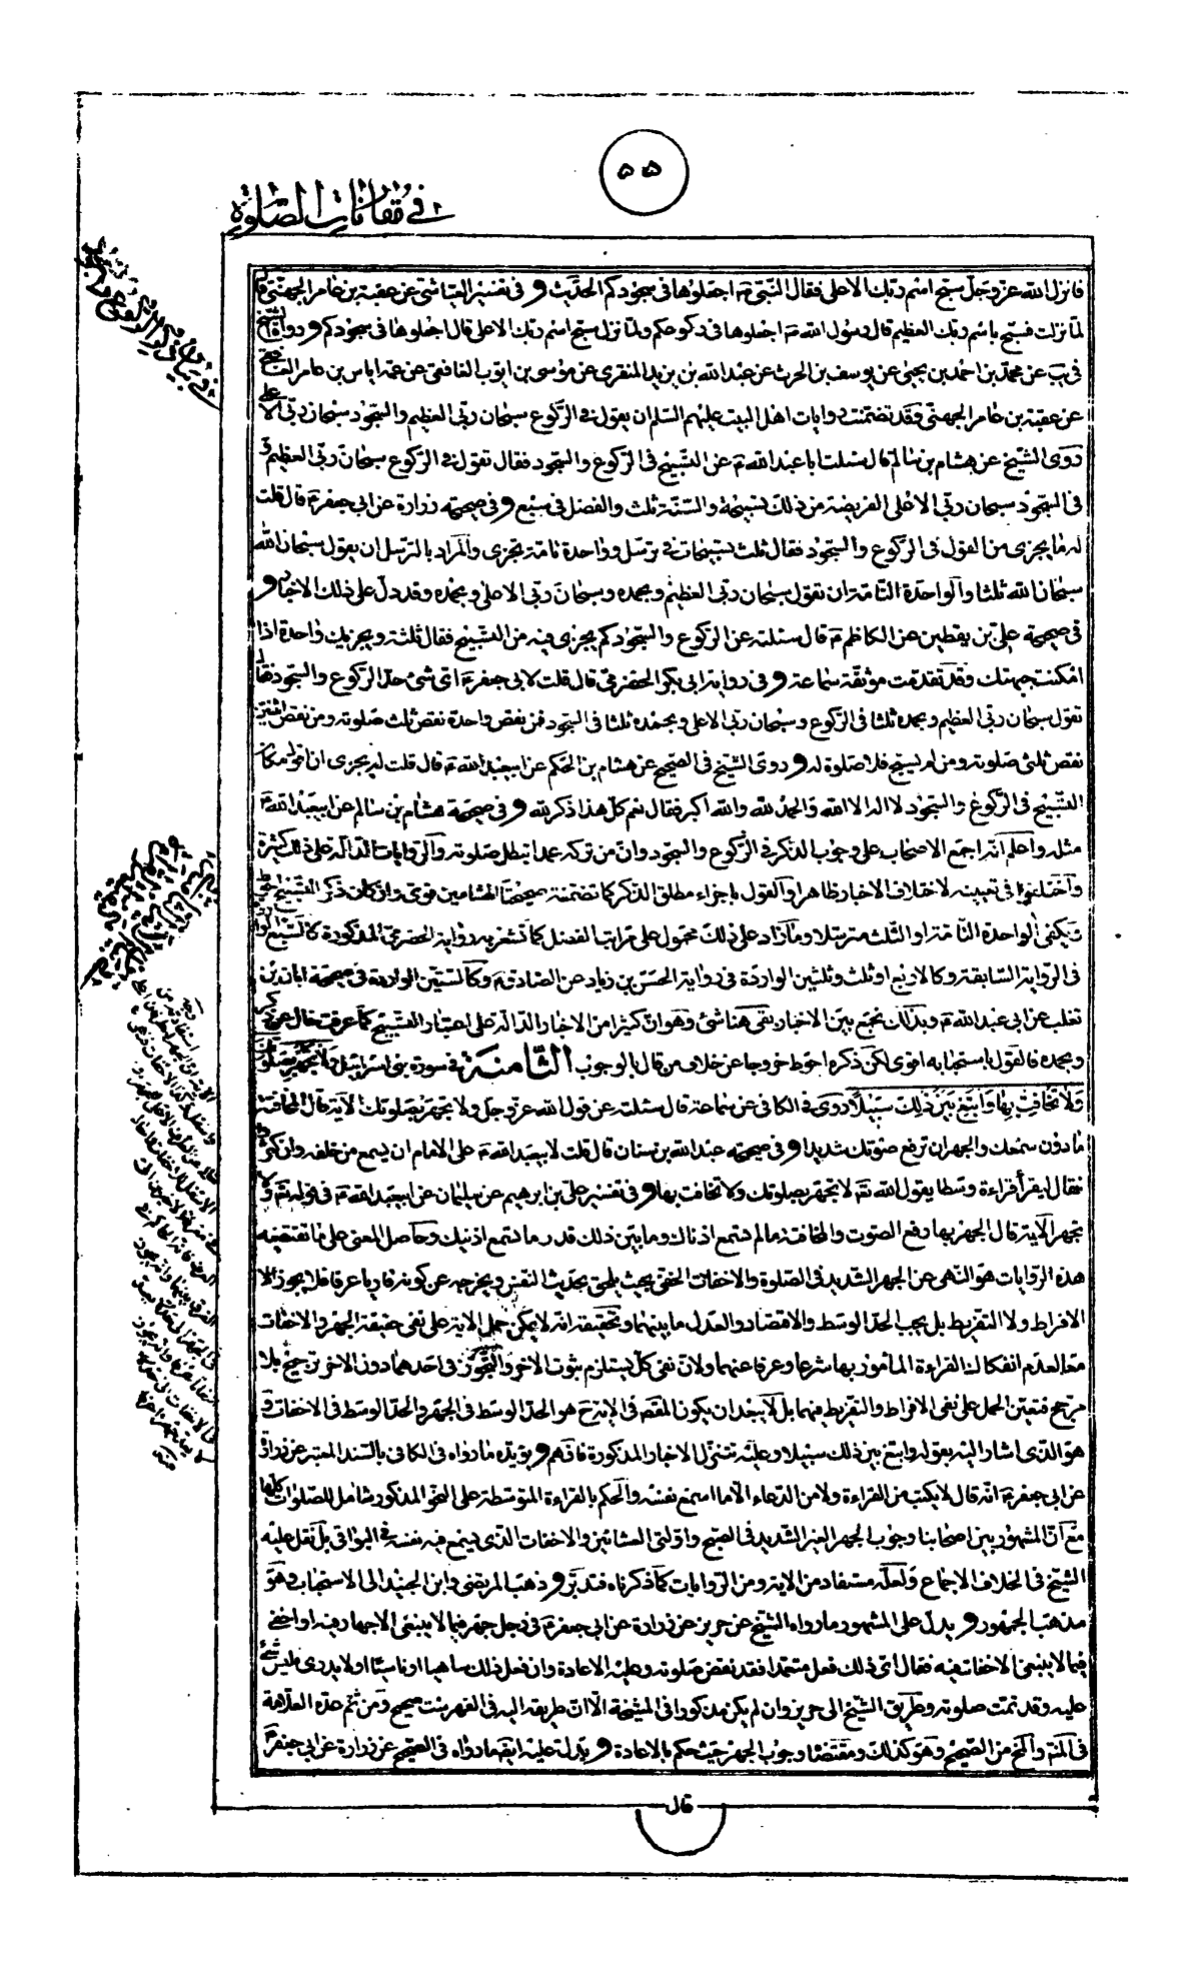 ٥٥
في مقارنات الصلوة
فانزل الله عز وجل سبح اسم ربك الاعلى فقال النبي ص اجعلوها في سجودكم الحديث و في تفسير العياشي عن عقبة بن عامر الجهني قال
لما نزلت فسبح باسم ربك العظيم قال رسول الله ص اجعلوها في ركوعكم ولما نزل سبح اسم ربك الاعلى قال اجعلوها في سجودكم و رواه الشيخ
في يب عن محمد بن احمد بن يحيى عن يوسف بن الحرث عن عبد الله بن يزيد المنقري عن موسى بن ايوب الغافقي عن عمه اياس بن عامر الغافقي
عن عقبة بن عامر الجهني فقد تضمنت روايات اهل البيت عليهم السلم ان يقول في الركوع سبحان ربي العظيم والسجود سبحان ربي الاعلى
روى الشيخ عن هشام بن سالم قال سئلت ابا عبد الله ع عن التسبيح في الركوع والسجود فقال تقول في الركوع سبحان ربي العظيم و
في السجود سبحان ربي الاعلى الفريضة من ذلك تسبيحة والسنة ثلث والفضل في سبع و في صحيحة زرارة عن ابي جعفر ع قال قلت
له ما يجزي من القول في الركوع والسجود فقال ثلث تسبيحات في ترسل وواحدة تامة تجزي والمراد بالترسل ان يقول سبحان الله
سبحان الله ثلثا والواحدة التامة ان تقول سبحان ربي العظيم وبحمده وسبحان ربي الاعلى وبحمده وقد دل على ذلك الاخبار و
في صحيحة علي بن يقطين عن الكاظم ع قال سئلته عن الركوع والسجود كم يجزي فيه من التسبيح فقال ثلثة ويجزيك واحدة اذا
امكنت جبهتك وقد تقدمت موثقة سماعة و في رواية ابي بكر الحضرمي قال قلت لابي جعفر ع اي شئ حد الركوع والسجود فقال
تقول سبحان ربي العظيم وبحمده ثلثا في الركوع وسبحان ربي الاعلى وبحمده ثلثا في السجود فمن نقص واحدة نقص ثلث صلوته ومن نقص اثنتين
نقص ثلثي صلوته ومن لم يسبح فلا صلوة له و روى الشيخ في الصحيح عن هشام بن الحكم عن ابيعبد الله ع قال قلت له يجزي ان اقول مكان
التسبيح في الركوع والسجود لا اله الا الله والحمد لله والله اكبر فقال نعم كل هذا ذكر لله و في صحيحة هشام بن سالم عن ابيعبد الله ع
مثله واعلم انه اجمع الاصحاب على وجوب الذكر في الركوع والسجود وان من تركه عمدا بطل صلوته والروايات الدالة على ذلك كثيرة
واختلفوا في تعيينه لاختلاف الاخبار ظاهرا والقول باجزاء مطلق الذكر كما تضمنته صحيحتا الهشامين قوي وان كان ذكر التسبيح احوط
تكفي الواحدة التامة او الثلث مترتبلا وما زاد على ذلك محمول على مراتب الفضل كما تشعر به رواية الحضرمي المذكورة كالسبع الواردة
في الرواية السابقة وكالاربع او ثلث وثلثين الواردة في رواية الحسن بن زياد عن الصادق ع وكالستين الواردة في صحيحة ابان بن
تغلب عن ابي عبد الله ع وبذلك نجمع بين الاخبار بقي هنا شئ وهو ان كثيرا من الاخبار الدالة على اعتبار التسبيح كما عرفت خال عن ذكر
وبحمده فالقول باستحبابه اقوى لكن ذكره احوط خروجا عن خلاف من قال بالوجوب الثامنة في سورة بني اسرائيل ولا تجهر بصلوتك
ولا تخافت بها وابتغ بين ذلك سبيلا روى في الكافي عن سماعة قال سئلته عن قول الله عز وجل ولا تجهر بصلوتك الآية قال المخافتة
ما دون سمعك والجهر ان ترفع صوتك شديدا و في صحيحة عبد الله بن سنان قال قلت لابيعبد الله ع على الامام ان يسمع من خلفه وان كثروا
فقال ليقرأ قراءة وسطا يقول الله تع لا تجهر بصلوتك ولا تخافت بها و في تفسير علي بن ابرهيم عن سليمان عن ابيعبد الله ع في قوله تع ولا
تجهر الآية قال الجهر بها رفع الصوت والمخافتة ما لم تسمع اذناك وما بين ذلك قدر ما تسمع اذنيك وحاصل المعنى على ما تقتضيه
هذه الروايات هو النهي عن الجهر الشديد في الصلوة والاخفات الخفي بحيث يلحق بحديث النفس ويخرجه عن كونه قاريا عرفا فلا يجوز الا
الافراط ولا التفريط بل يجب الحد الوسط والاقتصاد والعدل ما بينهما وتحقيقه انه لا يمكن حمل الاية على نفي حقيقة الجهر والاخفات
معا لعدم انفكاك القراءة المأمور بها شرعا وعرفا عنهما ولان نفي كل يستلزم ثبوت الاخر والتجوز في احدهما دون الاخر ترجيح بلا
مرجح فتعين الحمل على نفي الافراط والتفريط فيهما بل لا يبعد ان يكون المقصد في الاية هو الحد الوسط في الجهر والحد الوسط في الاخفات و
هو الذي اشار اليه بقوله وابتغ بين ذلك سبيلا وعليه تتنزل الاخبار المذكورة فافهم و يؤيده ما رواه في الكافي بالسند المعتبر عن زرارة
عن ابي جعفر ع انه قال لا يكتب من القراءة ولا من الدعاء الا ما اسمع نفسه والحكم بالقراءة المتوسطة على النحو المذكور شامل للصلوات كلها
مع ان المشهور بين اصحابنا وجوب الجهر الغير الشديد في الصبح واولتي العشائين والاخفات الذي يسمع فيه نفسه في البواقي بل نقل عليه
الشيخ في الخلاف الاجماع ولعله مستفاد من الاية ومن الروايات كما ذكرناه فتدبر و ذهب المرتضى وابن الجنيد الى الاستحباب وهو
مذهب الجمهور و يدل على المشهور ما رواه الشيخ عن حريز عن زرارة عن ابي جعفر ع في رجل جهر فيما لا ينبغي الاجهار فيه او اخفى
فيما لا ينبغي الاخفات فيه فقال اي ذلك فعل متعمدا فقد نقض صلوته وعليه الاعادة وان فعل ذلك ساهيا او ناسيا او لا يدري فليس شئ
عليه وقد تمت صلوته وطريق الشيخ الى حريز وان لم يكن مذكورا في المشيخة الا ان طريقه اليه في الفهرست صحيح ومن ثم عده العلامة
في المنتهى والمخ من الصحيح وهو كذلك ومقتضاه وجوب الجهر حيث حكم بالاعادة و يدل عليه ايضا ما رواه في الصحيح عن زرارة عن ابي جعفر ع
قال